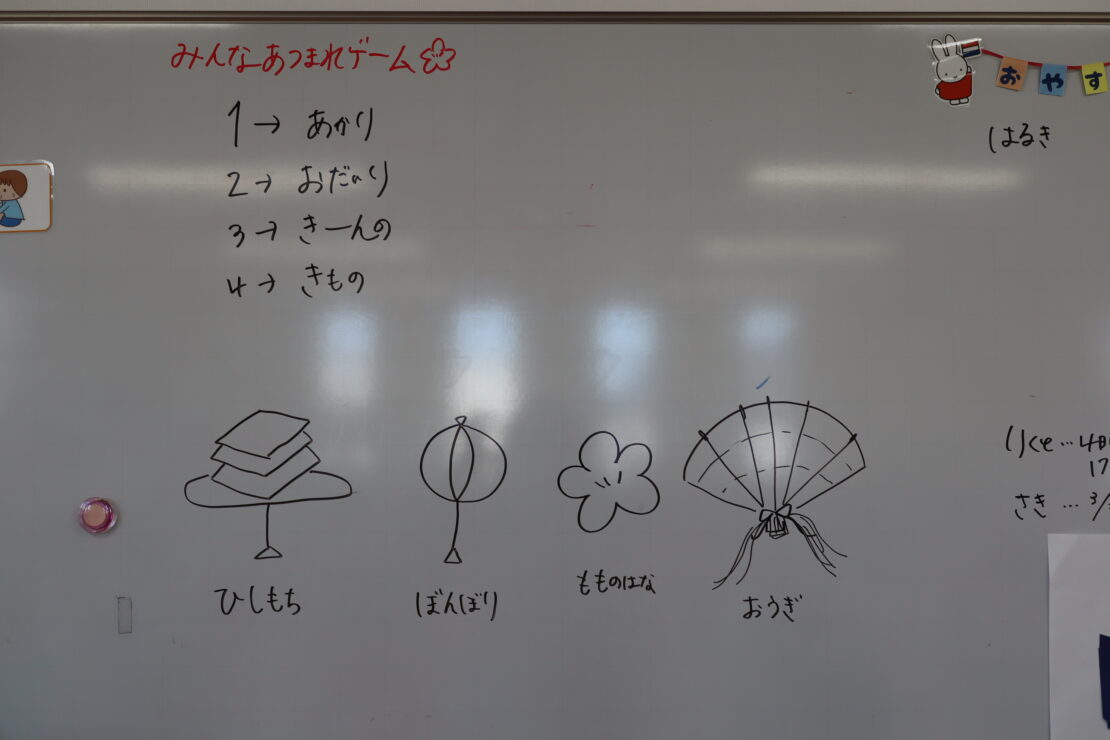 みんなあつまれゲーム
1→ あかり
2→ おだいり
3→ きーんの
4→ きもの
おやす
はるき
ひしもち
ぼんぼり
もものはな
おうぎ
さき…3/